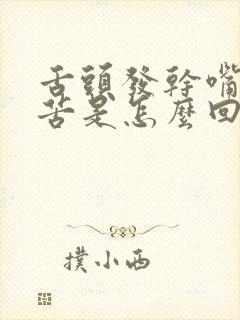 舌頭發幹嘴
苦是怎麼回
撲小西